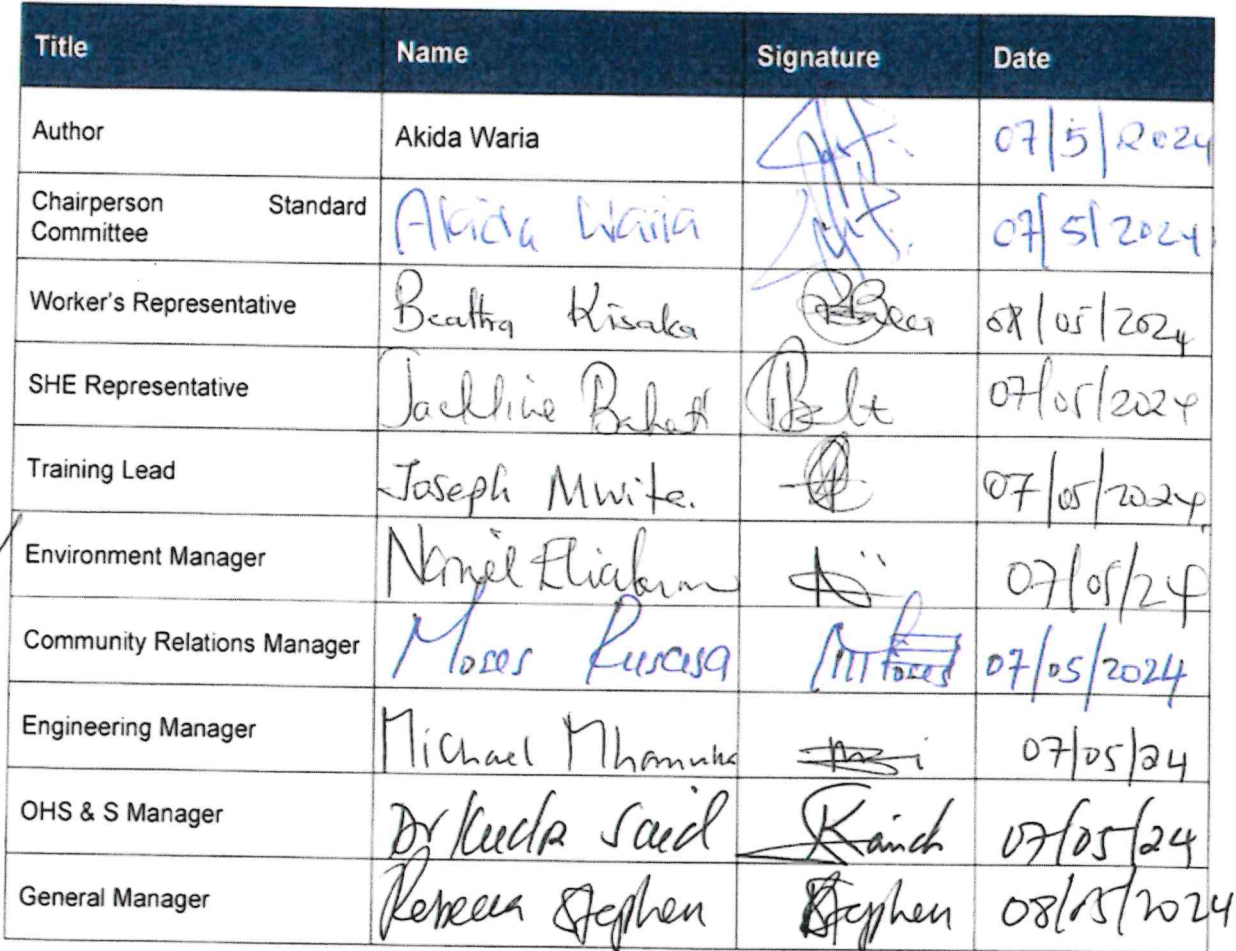 Title Name Signature Date
Author Akida Waria 07/5/2024
Chairperson Standard Akida Waria 07/5/2024
Committee
Worker's Representative Kisaka 08/05/2024
SHE Representative Jackline Bahati 07/05/2024
Training Lead Joseph Mwita. 07/05/2024
Environment Manager 07/05/24
Community Relations Manager Moses 07/05/2024
Engineering Manager Michael 07/05/24
OHS & S Manager Dr Kuda Said 07/05/24
General Manager Rebecca Stephen Stephen 08/05/2024